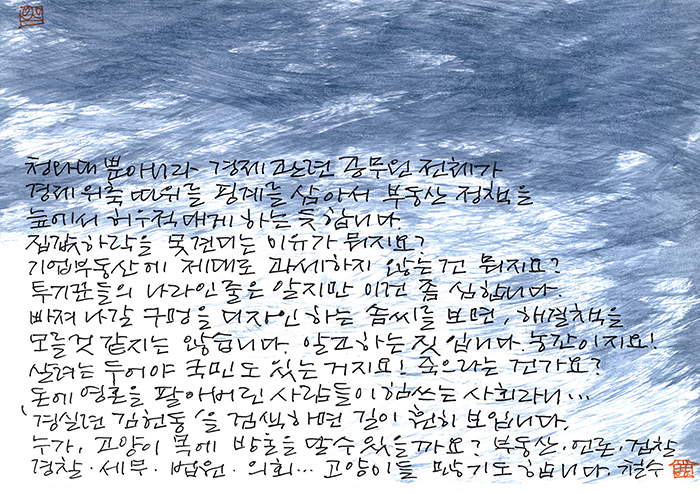 청와대 뿐아니라 경제 관련 공무원 전체가
경제 위축 따위를 핑계를 삼아서 부동산 정책을
늪에서 허우적대게 하는 듯합니다.
집값하락을 못견디는 이유가 뭐지요?
기업부동산에 제대로 과세하지 않는건 뭐지요?
투기꾼들의 나라인줄은 알지만 이건 좀 심합니다.
빠져 나갈 구멍을 디자인 하는 솜씨를 보면, 해결책을
모를것 같지는 않습니다. 알고하는 짓 입니다. 농간이지요!
살려는 두어야 국민도 있는 거지요! 죽으라는 건가요?
돈에 영혼을 팔아버린 사람들이 힘쓰는 사회라니...
'경실련 김헌동'을 검색하면 길이 훤히 보입니다.
누가, 고양이 목에 방울을 달수 있을까요? 부동산·언론·검찰
경찰·세무·법원·의회... 고양이들 많기도 합니다. 철수